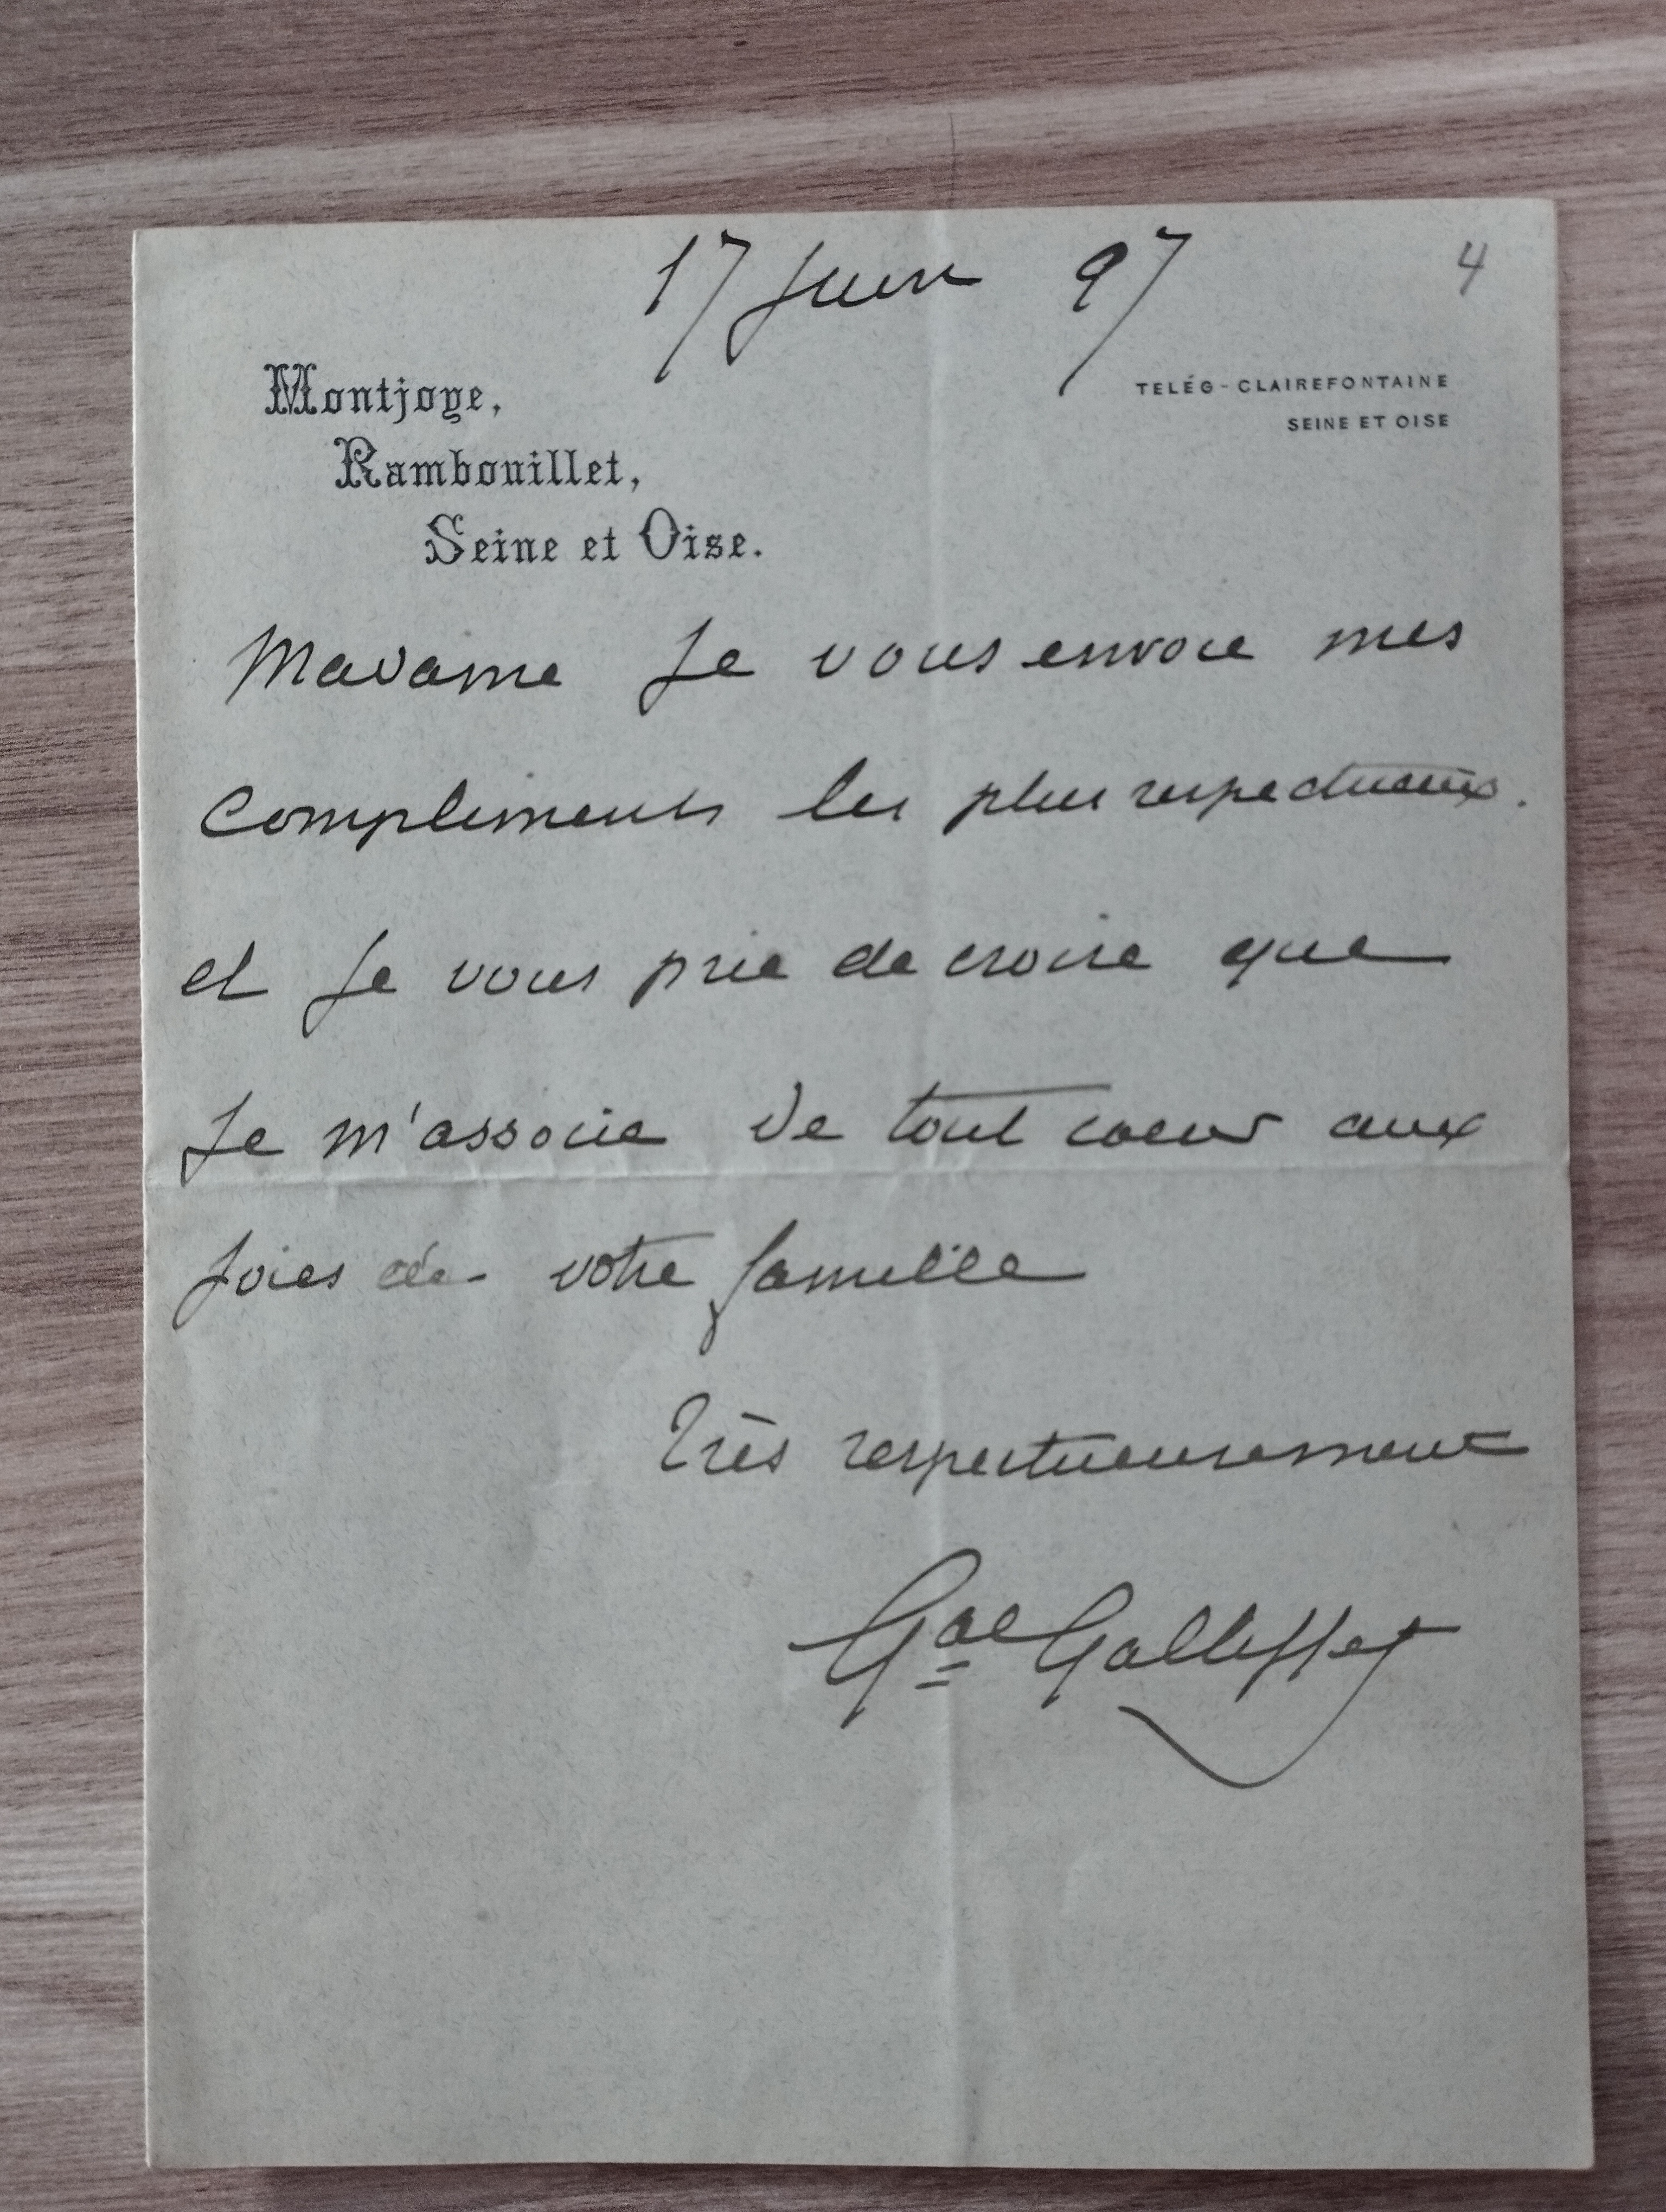 17 Juin 97
4
Montjoye,
Rambouillet,
Seine et Oise.
TELÉG-CLAIREFONTAINE
SEINE ET OISE
Madame Je vous envoie mes
compliments les plus respectueux.
et Je vous prie de croire que
Je m'associe de tout coeur aux
Joies de votre famille
Très respectueusement
Gal Galliffet